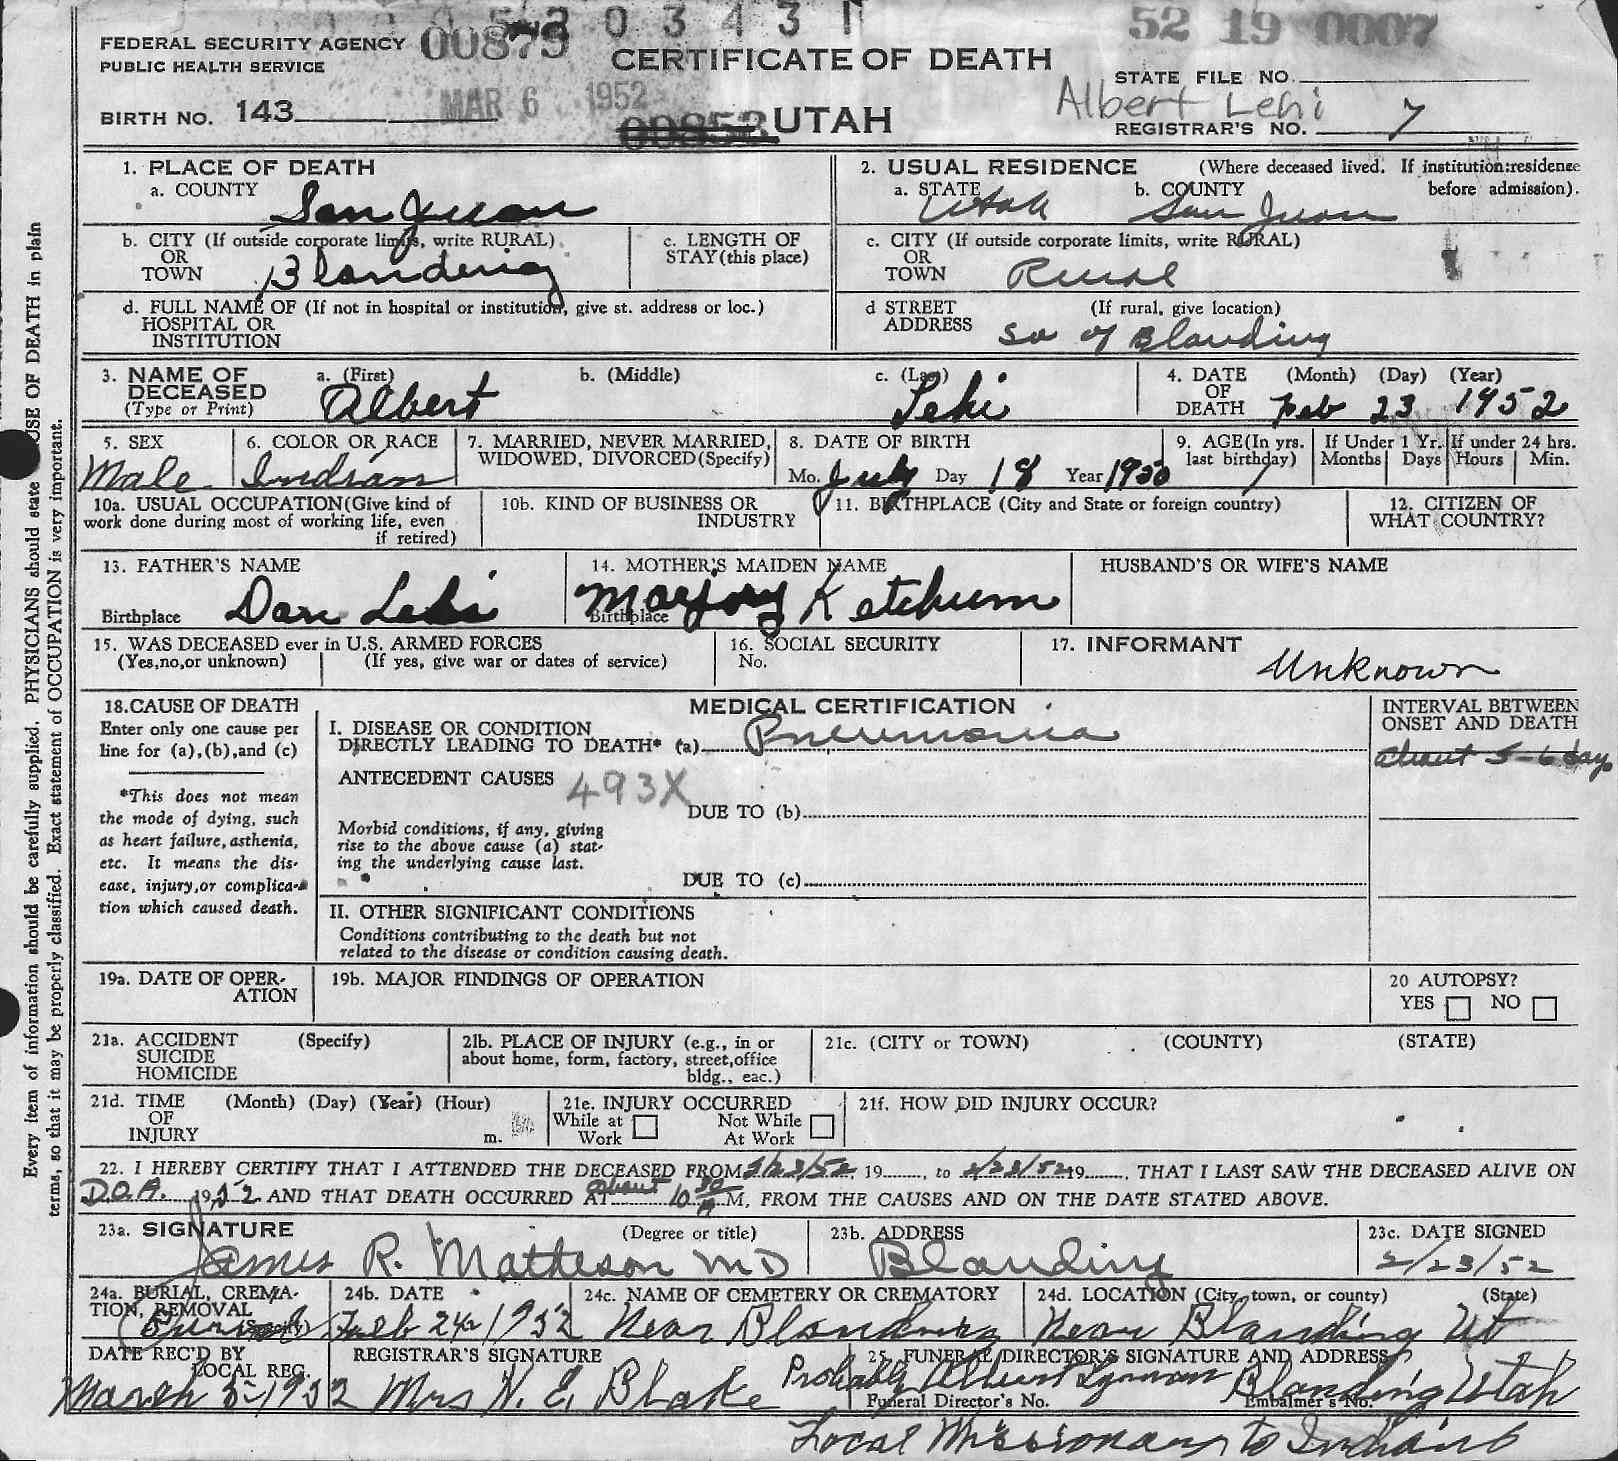 520343 1
52 19 0007
FEDERAL SECURITY AGENCY 00873
PUBLIC HEALTH SERVICE
CERTIFICATE OF DEATH
STATE FILE NO.
Albert Lehi
BIRTH NO. 143
MAR 6 1952
00853 UTAH
REGISTRAR'S NO. 7
1. PLACE OF DEATH
a. COUNTY San Juan
2. USUAL RESIDENCE (Where deceased lived. If institution:residence before admission).
a. STATE Utah b. COUNTY San Juan
b. CITY (If outside corporate limits, write RURAL)
OR
TOWN Blanding
c. LENGTH OF
STAY (this place)
c. CITY (If outside corporate limits, write RURAL)
OR
TOWN Rural
d. FULL NAME OF (If not in hospital or institution, give st. address or loc.)
HOSPITAL OR
INSTITUTION
d STREET (If rural, give location)
ADDRESS So of Blanding
3. NAME OF
DECEASED
(Type or Print)
a. (First) Albert
b. (Middle)
c. (Last) Lehi
4. DATE (Month) (Day) (Year)
OF
DEATH Feb 23 1952
5. SEX
Male
6. COLOR OR RACE
Indian
7. MARRIED, NEVER MARRIED,
WIDOWED, DIVORCED (Specify)
8. DATE OF BIRTH
Mo. July Day 18 Year 1950
9. AGE (In yrs.
last birthday) 1
If Under 1 Yr.
Months Days
If under 24 hrs.
Hours Min.
10a. USUAL OCCUPATION (Give kind of
work done during most of working life, even
if retired)
10b. KIND OF BUSINESS OR
INDUSTRY
11. BIRTHPLACE (City and State or foreign country)
12. CITIZEN OF
WHAT COUNTRY?
13. FATHER'S NAME
Birthplace Dan Lehi
14. MOTHER'S MAIDEN NAME
Birthplace Marjory Ketchum
HUSBAND'S OR WIFE'S NAME
15. WAS DECEASED ever in U.S. ARMED FORCES
(Yes,no,or unknown) (If yes, give war or dates of service)
16. SOCIAL SECURITY
No.
17. INFORMANT
Unknown
18.CAUSE OF DEATH
Enter only one cause per
line for (a),(b),and (c)
*This does not mean
the mode of dying, such
as heart failure, asthenia,
etc. It means the dis-
ease, injury,or complica-
tion which caused death.
MEDICAL CERTIFICATION
I. DISEASE OR CONDITION
DIRECTLY LEADING TO DEATH* (a) Pneumonia
ANTECEDENT CAUSES 493X
DUE TO (b)
Morbid conditions, if any, giving
rise to the above cause (a) stat-
ing the underlying cause last.
DUE TO (c)
II. OTHER SIGNIFICANT CONDITIONS
Conditions contributing to the death but not
related to the disease or condition causing death.
INTERVAL BETWEEN
ONSET AND DEATH
about 5-6 days
19a. DATE OF OPER-
ATION
19b. MAJOR FINDINGS OF OPERATION
20 AUTOPSY?
YES NO
21a. ACCIDENT (Specify)
SUICIDE
HOMICIDE
21b. PLACE OF INJURY (e.g., in or
about home, form, factory, street,office
bldg., eac.)
21c. (CITY or TOWN) (COUNTY) (STATE)
21d. TIME (Month) (Day) (Year) (Hour)
OF
INJURY m.
21e. INJURY OCCURRED
While at Work Not While At Work
21f. HOW DID INJURY OCCUR?
22. I HEREBY CERTIFY THAT I ATTENDED THE DECEASED FROM 2/23/52, 19 , to 2/23/52 19 , THAT I LAST SAW THE DECEASED ALIVE ON
D.O.A. 1952 AND THAT DEATH OCCURRED AT about 10 30 A M, FROM THE CAUSES AND ON THE DATE STATED ABOVE.
23a. SIGNATURE (Degree or title)
James R. Matheson MD
23b. ADDRESS
Blanding
23c. DATE SIGNED
2/23/52
24a. BURIAL, CREMA-
TION, REMOVAL
(Specify)
Burial
24b. DATE
Feb 24 1952
24c. NAME OF CEMETERY OR CREMATORY
Near Blanding
24d. LOCATION (City, town, or county) (State)
Near Blanding Ut
DATE REC'D BY
LOCAL REG.
March 5-1952
REGISTRAR'S SIGNATURE
Mrs N. E. Blake
25. FUNERAL DIRECTOR'S SIGNATURE AND ADDRESS
Probably Albert Lyman Blanding Utah
Funeral Director's No. Embalmer's No.
Local Missionary to Indians
Every item of information should be carefully supplied. PHYSICIANS should state CAUSE OF DEATH in plain
terms, so that it may be properly classified. Exact statement of OCCUPATION is very important.